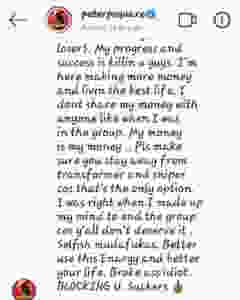 peterpsquare
losers. My progress and
success is killin u guys. I'm
here making more money
and livin the best life. I
dont share my money with
anyone like when I was
in the group. My money
is my money .. Pls make
sure you stay away from
transformer and sniper
cos that's the only option.
I was right when I made up
my mind to end the group
cos y'all don't deserve it.
Selfish mudafukas. Better
use this Energy and better
your life. Broke ass idiot.
BLOCKING U. Suckers